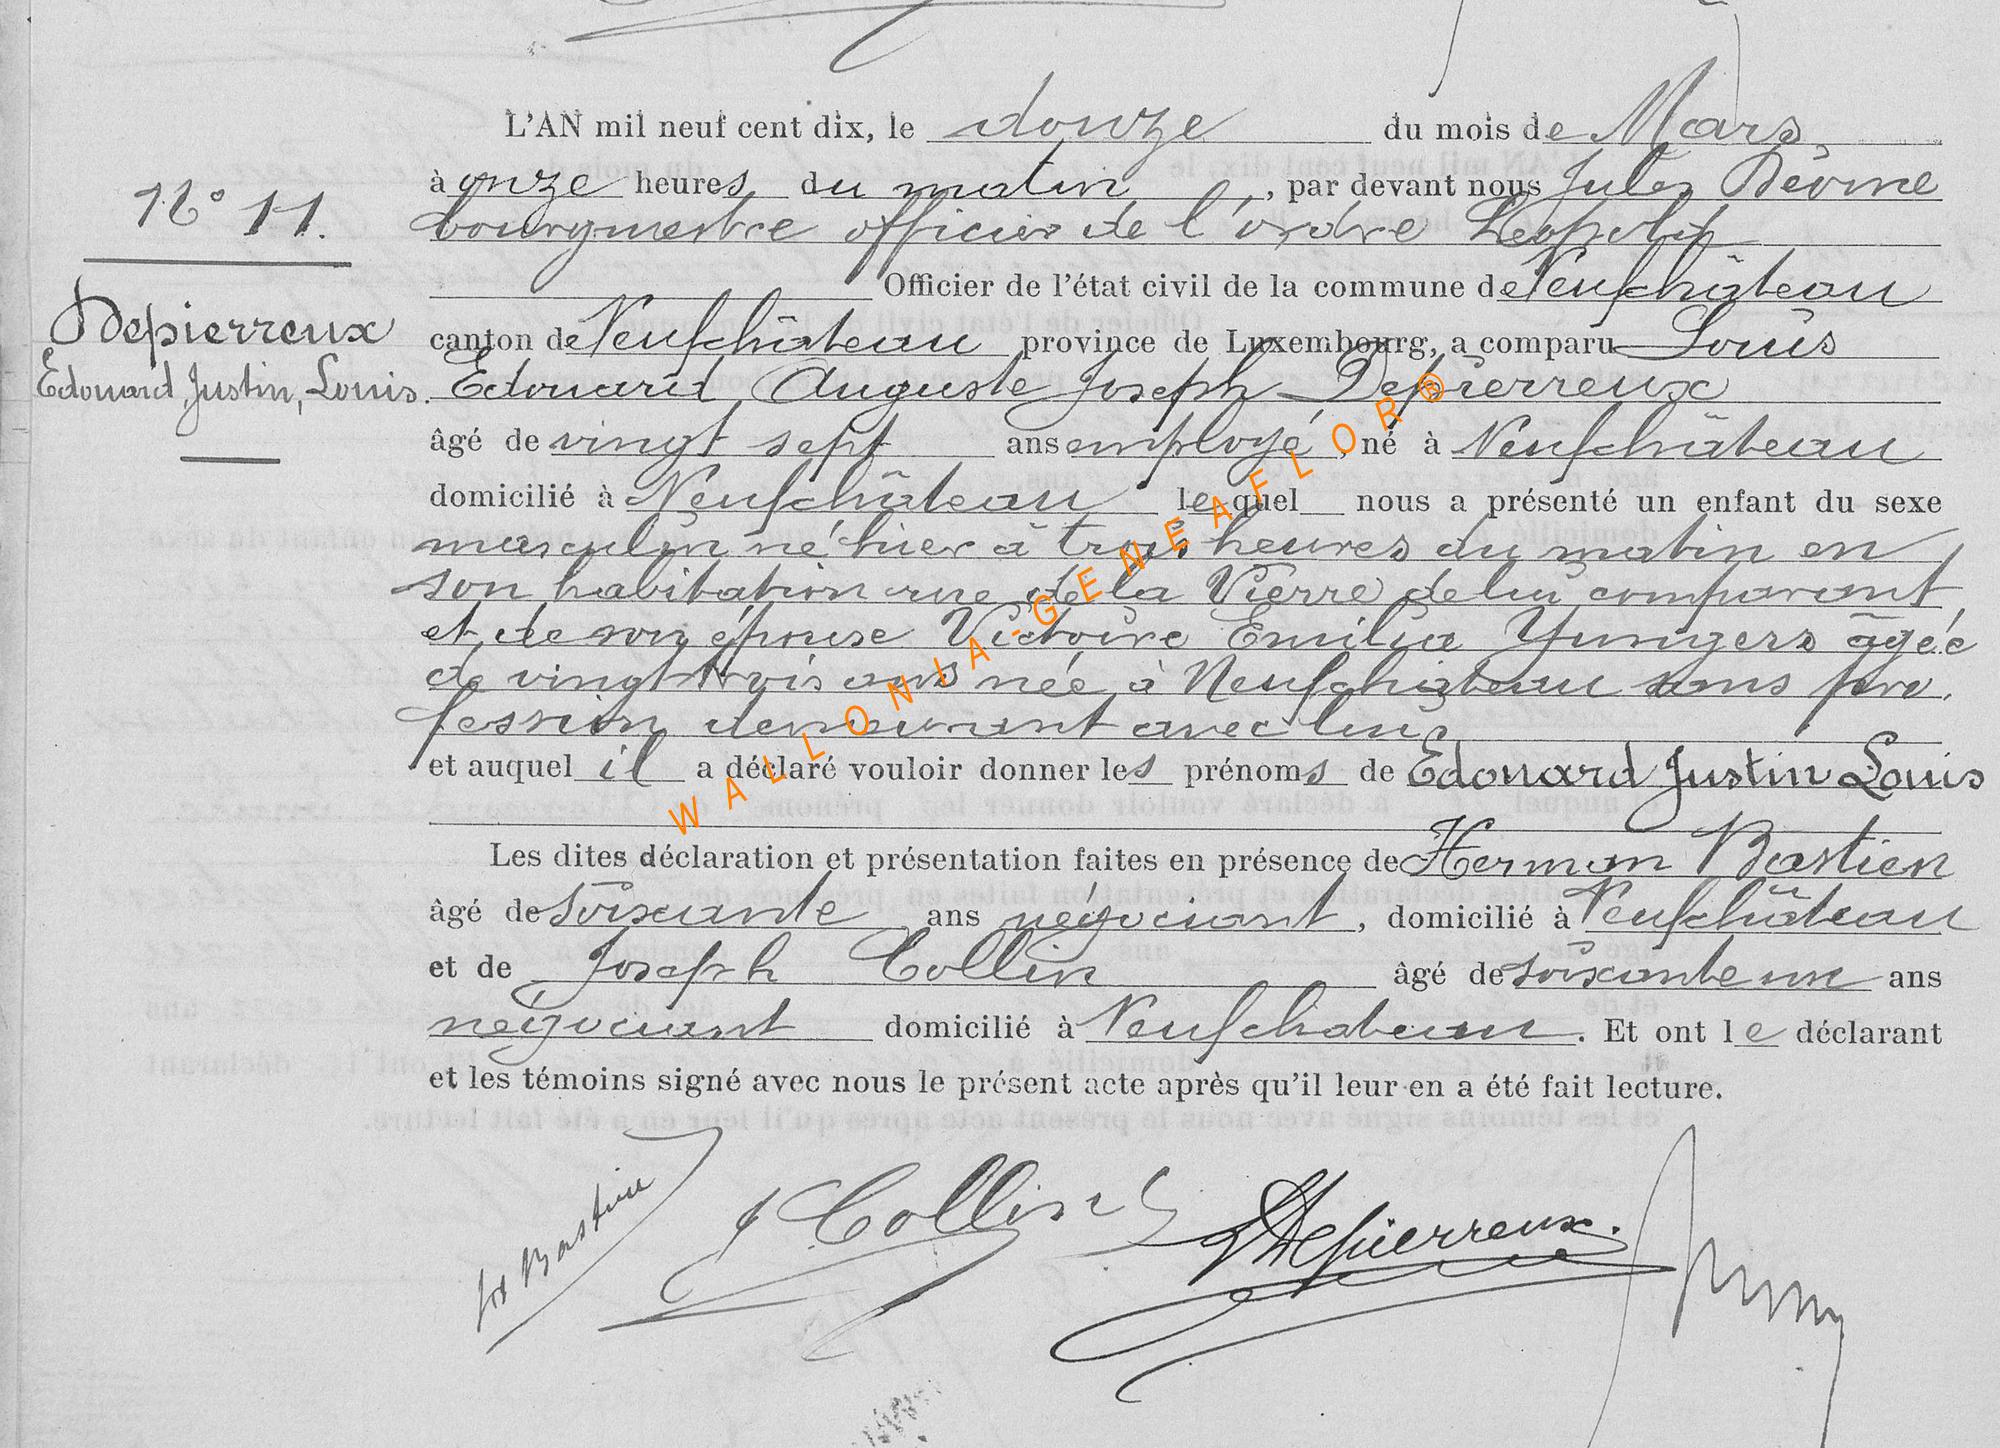 L'AN mil neuf cent dix, le douze du mois de Mars,
à onze heures du matin, par devant nous Jules
N° 11.
bourgmestre officier de l'ordre Léopold
Officier de l'état civil de la commune de Neufchâteau
Depierreux
Edouard, Justin, Louis.
canton de Neufchâteau province de Luxembourg, a comparu Louis
Edouard Auguste Joseph Depierreux
âgé de vingt sept ans employé, né à Neufchâteau
domicilié à Neufchâteau lequel nous a présenté un enfant du sexe
masculin né hier à trois heures du matin en
son habitation rue de la Vierre de lui comparant
et de son épouse Victoire Emilia Yungers âgée
de vingt trois ans née à Neufchâteau sans pro.
fession demeurant avec lui
et auquel il a déclaré vouloir donner les prénoms de Edouard Justin Louis
Les dites déclaration et présentation faites en présence de Herman Bastien
âgé de soixante ans négociant, domicilié à Neufchâteau
et de Joseph Collin âgé de soixante un ans
négociant domicilié à Neufchateau. Et ont le déclarant
et les témoins signé avec nous le présent acte après qu'il leur en a été fait lecture.
Bastien
J Collin
LDepierreux.
WALLONIA-GENEAFLOR®